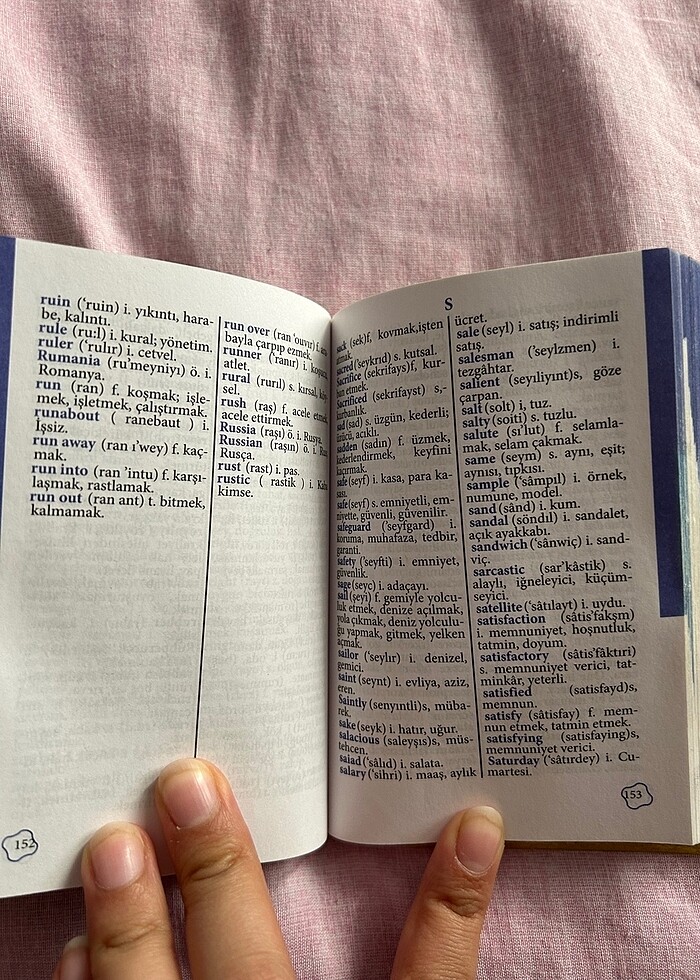 ruin (‘ruin) i. yıkıntı, hara-
be, kalıntı.
rule (ru:l) i. kural; yönetim.
ruler (‘rulır) i. cetvel.
Rumania (ru’meyniyı) ö. i.
Romanya.
run (ran) f. koşmak; işle-
mek, işletmek, çalıştırmak.
runabout ( ranebaut ) i.
İşsiz.
run away (ran ı’wey) f. kaç-
mak.
run into (ran ’intu) f. karşı-
laşmak, rastlamak.
run out (ran ant) t. bitmek,
kalmamak.
run over (ran ’ouvır) f.
bayla çarpıp ezmek.
runner (‘ranır) i.
atlet.
rural (rurıl) s. kırsal,
sel.
rush (raş) f. acele etmek,
acele ettirmek.
Russia (raşı) ö. i. Rusya.
Russian (raşın) ö. i.
Rusça.
rust (rast) i. pas.
rustic ( rastik ) i.
kimse.
152
S
sack (sek)f, kovmak,işten
atmak.
sacred (‘seykrıd) s. kutsal.
Sacrifice (sekrifays)f, kur-
ban etmek.
Sacrificed (sekrifayst) s,-
kurbanlık.
sad (sad) s. üzgün, kederli;
üzücü, acıklı.
sadden (sadın) f. üzmek,
kederlendirmek, keyfini
kaçırmak.
safe (seyf) i. kasa, para ka-
sası.
safe(seyf) s. emniyetli, em-
niyette, güvenli, güvenilir.
safeguard (‘seyfgard) i.
koruma, muhafaza, tedbir,
garanti.
safety (‘seyfti) i. emniyet,
güvenlik.
sage (seyc) i. adaçayı.
sail (seyi) f. gemiyle yolcu-
luk etmek, denize açılmak,
yola çıkmak, deniz yolculu-
ğu yapmak, gitmek, yelken
açmak.
sailor (‘seylır) i. denizel,
gemici.
saint (seynt) i. evliya, aziz,
eren.
Saintly (senyıntli)s, müba-
rek.
sake (seyk) i. hatır, uğur.
salacious (saleyşıs)s, müs-
tehcen.
salad (‘sâlıd) i. salata.
salary (‘sıhri) i. maaş, aylık
ücret.
sale (seyl) i. satış; indirimli
satış.
salesman (‘seylzmen) i.
tezgâhtar.
salient (seyıliyınt)s, göze
çarpan.
salt (solt) i, tuz.
salty (soiti) s. tuzlu.
salute (si’lut) f. selamla-
mak, selam çakmak.
same (seym) s. aynı, eşit;
aynısı, tıpkısı.
sample (‘sâmpıl) i. örnek,
numune, model.
sand (sând) i. kum.
sandal (söndıl) i. sandalet,
açık ayakkabı.
sandwich (‘sânwiç) i. sand-
viç.
sarcastic (sar’kâstik) s.
alaylı, iğneleyici, küçüm-
seyici.
satellite (‘sâtılayt) i. uydu.
satisfaction (sâtis’fakşm)
i. memnuniyet, hoşnutluk,
tatmin, doyum.
satisfactory (sâtis’fâktıri)
s. memnuniyet verici, tat-
minkâr, yeterli.
satisfied (satisfayd)s,
memnun.
satisfy (sâtisfay) f. mem-
nun etmek, tatmin etmek.
satisfying (satisfaying)s,
memnuniyet verici.
Saturday (‘sâtırdey) i. Cu-
martesi.
153